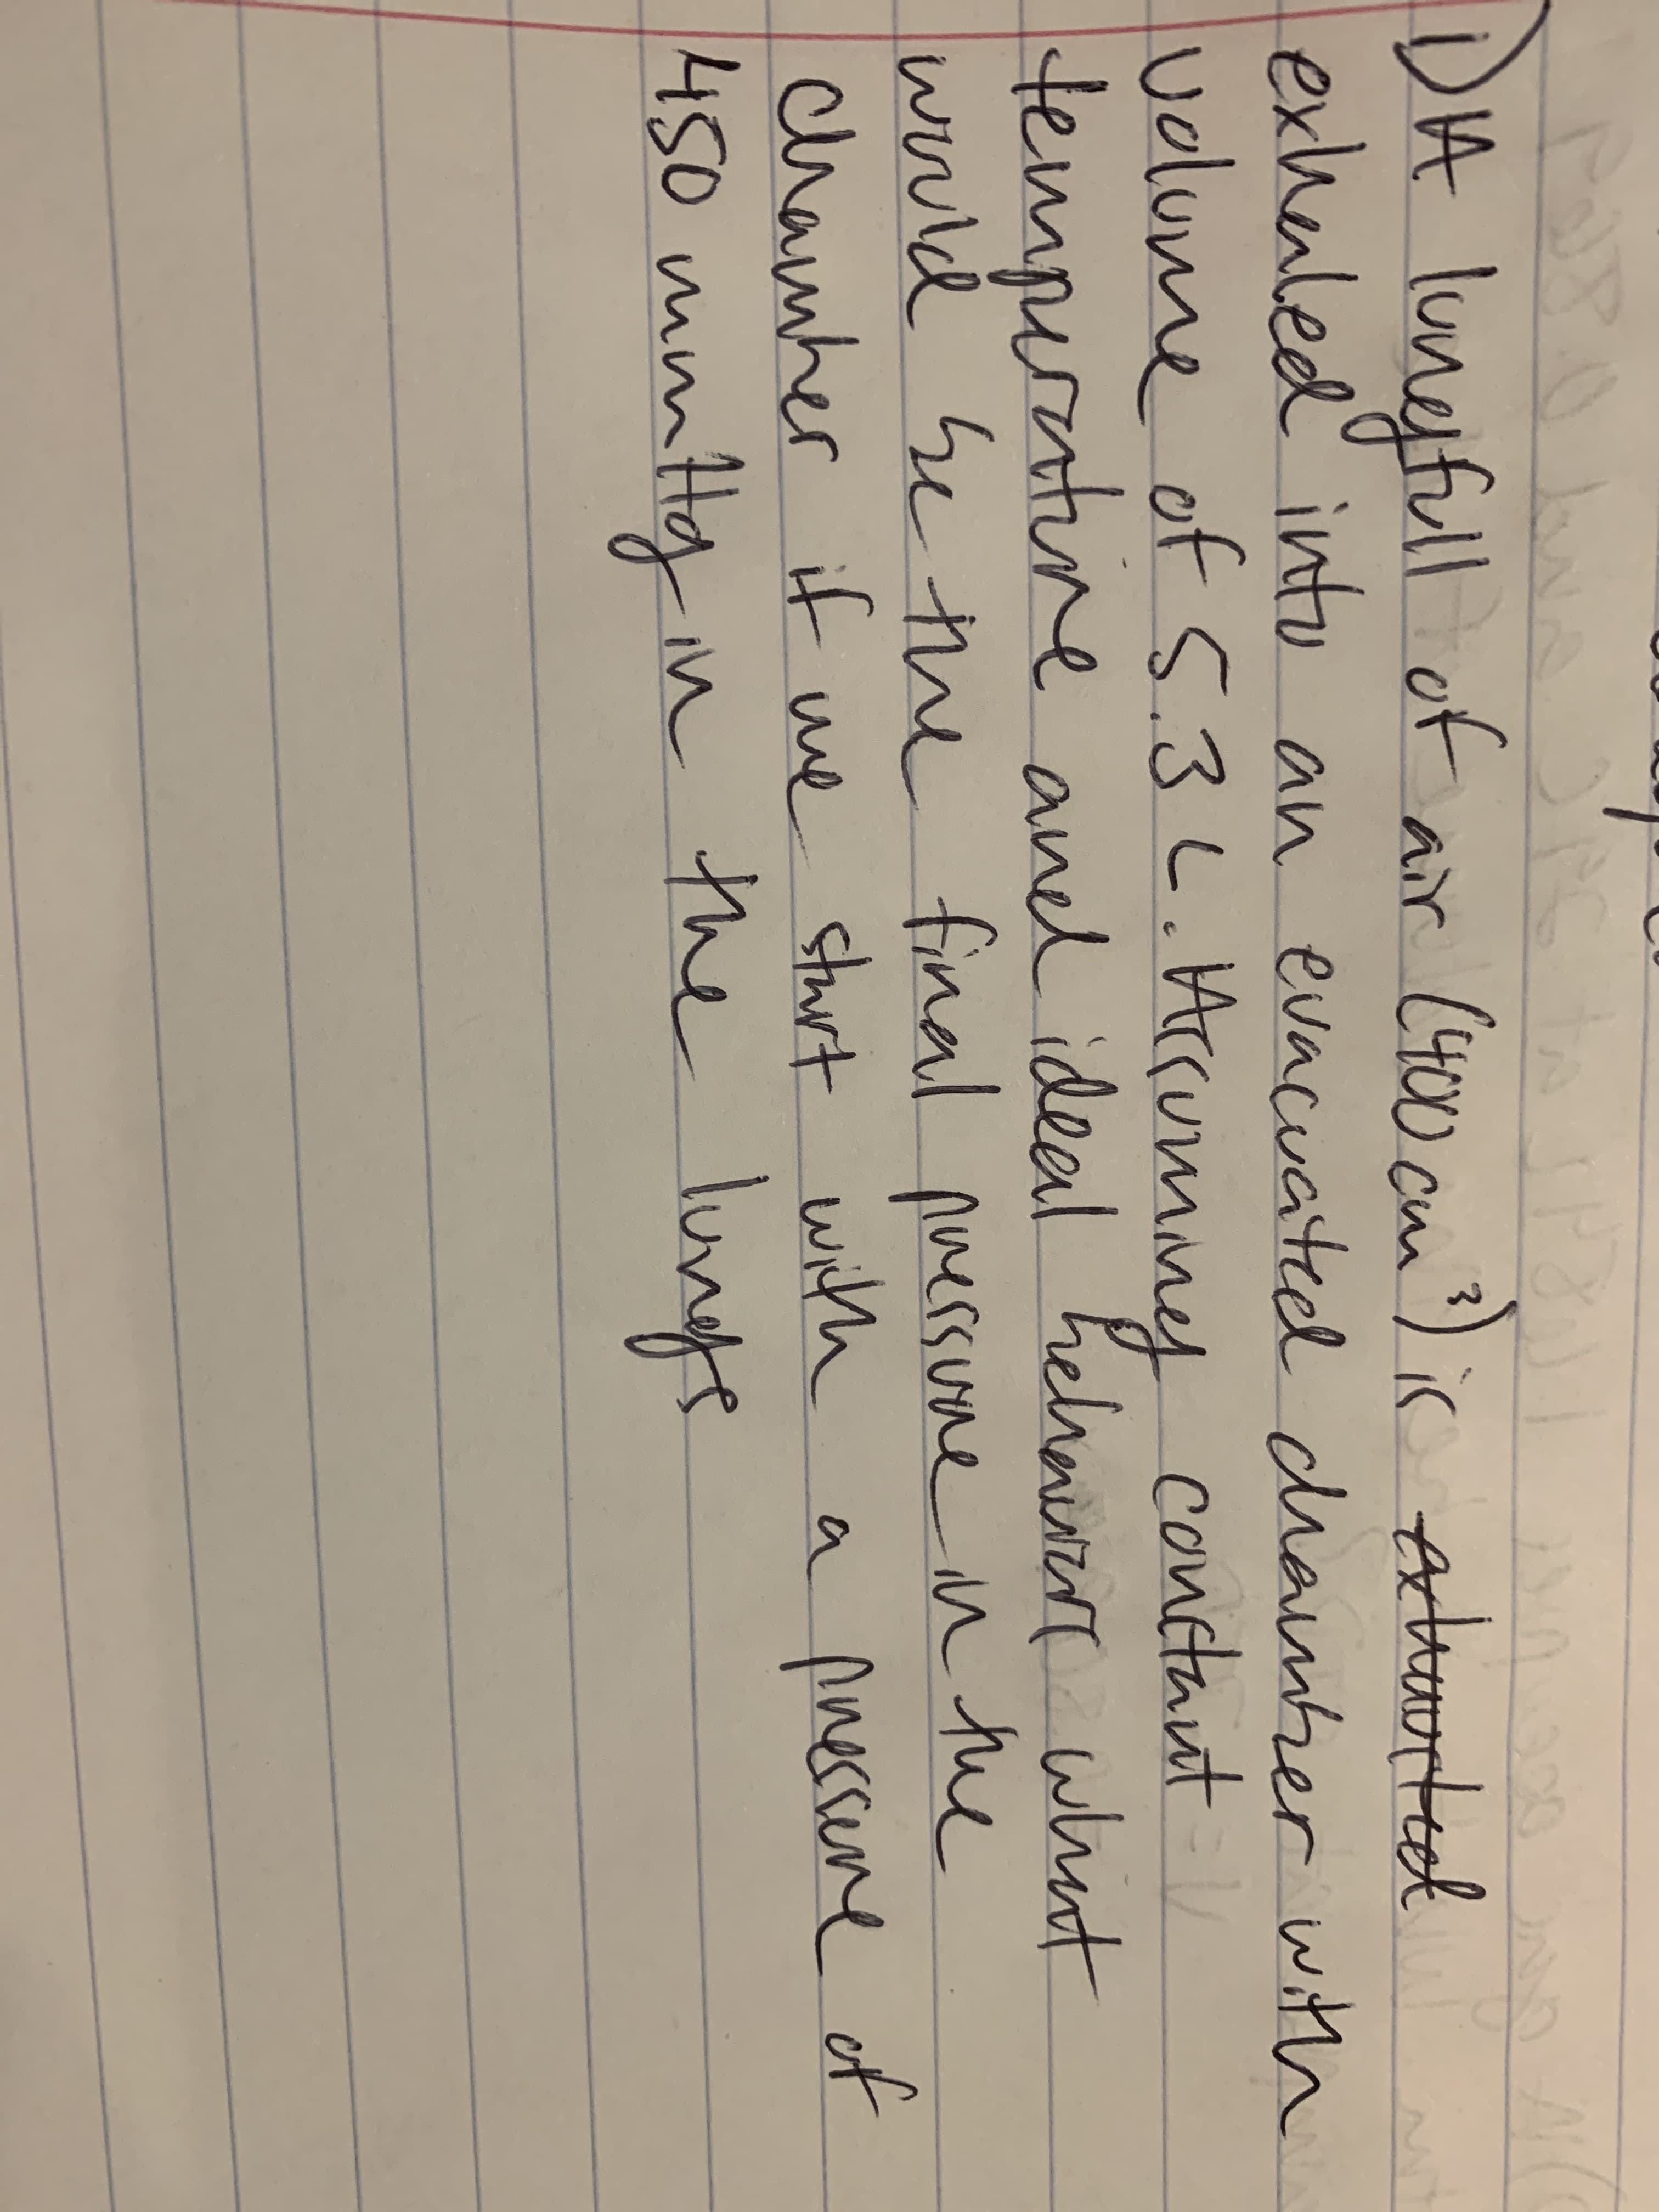 1) A lungfull of air (400 cm³) is exhausted
exhaled into an evacuated chamber with
volume of 5.3 L. Assuming constant
temperature and ideal behavior what
would be the final pressure in the
chamber if we start with a pressure of
450 mmHg in the lungs